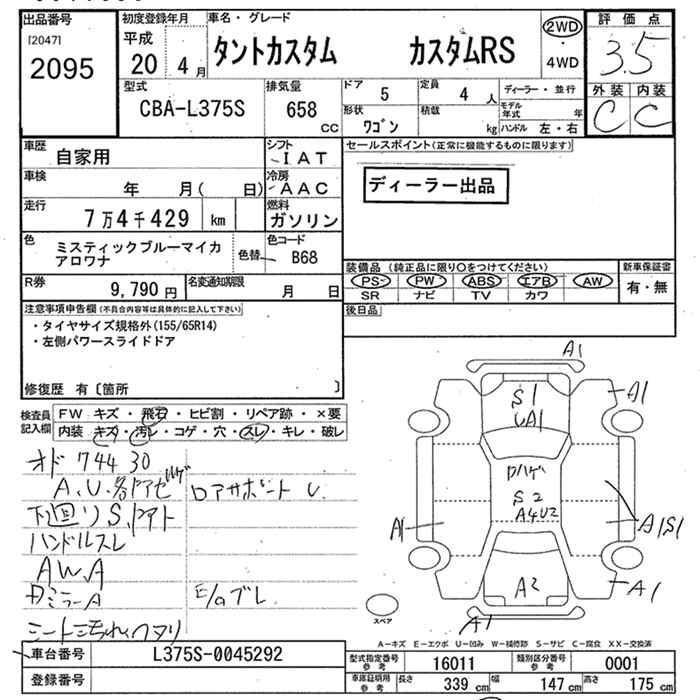 出品番号
[2047]
2095
初度登録年月
平成
20 4月
車名・グレード
タントカスタム カスタムRS
2WD
・
4WD
評価点
3.5
外装 内装
C C
型式
CBA-L375S
排気量
658
cc
ドア
5
定員
4人
ディーラー・並行
形状
ワゴン
積載
kg
モデル年式 年
ハンドル 左・右
車歴
自家用
シフト
IAT
車検
年 月( 日)
冷房
AAC
走行
7万4千429 km
燃料
ガソリン
色
ミスティックブルーマイカ
アロワナ
色替
色コード
B68
R券
9,790円
名変通知期限
月 日
セールスポイント(正常に機能するものに限ります)
ディーラー出品
装備品 (純正品に限り○をつけてください)
PS PW ABS エアB AW
SR ナビ TV カワ
新車保証書
有・無
後日品
注意事項申告欄(不具合内容等は具体的に記入して下さい)
・タイヤサイズ規格外(155/65R14)
・左側パワースライドドア
修復歴 有〔箇所 〕
検査員
記入欄
FW キズ・飛石・ヒビ割・リペア跡・×要
内装 キズ・汚レ・コゲ・穴・スレ・キレ・破レ
オド 74430
A.U.各ドアピ
下回りS.
ハンドルスレ
AWA
ミラーA
シート汚れ、ヘタリ
ロアサポートU
E/gブレ
A1
S1
UA1
A1
ロハゲ
S2
A4U2
A1
A1S1
A2
A1
A1
スペア
A-キズ E-エクボ U-凹み W-補修跡 S-サビ C-腐食 XX-交換済
車台番号
L375S-0045292
登録番号
型式指定番号
参考
16011
類別区分番号
参考
0001
車庫証明用
参考
長さ 339cm
幅 147cm
高さ 175cm